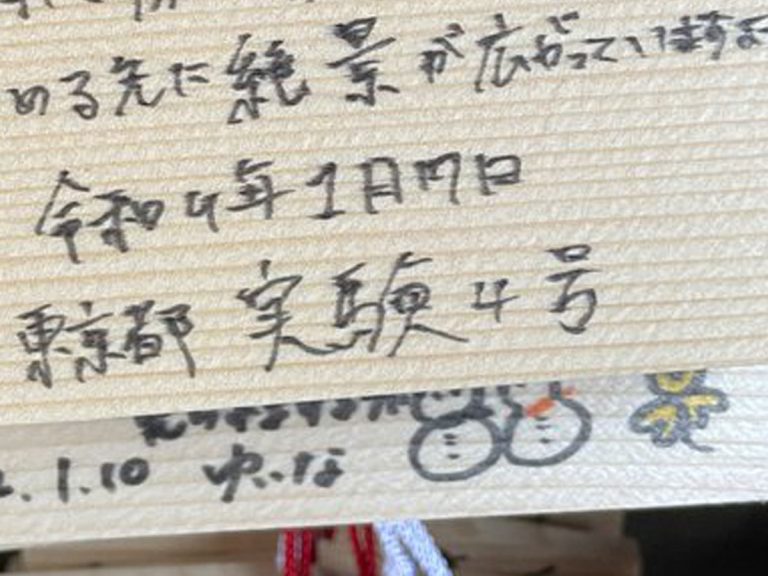 める先に絶景が広がっていますよ
令和4年1月7日
東京都 実験4号
.1.10 ゆいな